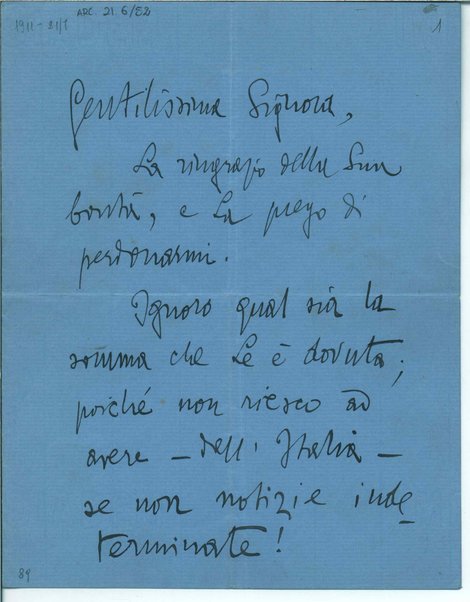 ARC. 21 6/52
1911 - 21/1
1
Gentilissima Signora,
La ringrazio della Sua
bontà, e La prego di
perdonarmi.
Ignoro qual sia la
somma che Le è dovuta;
poiché non riesco ad
avere - dell' Italia -
se non notizie inde
terminate!
89